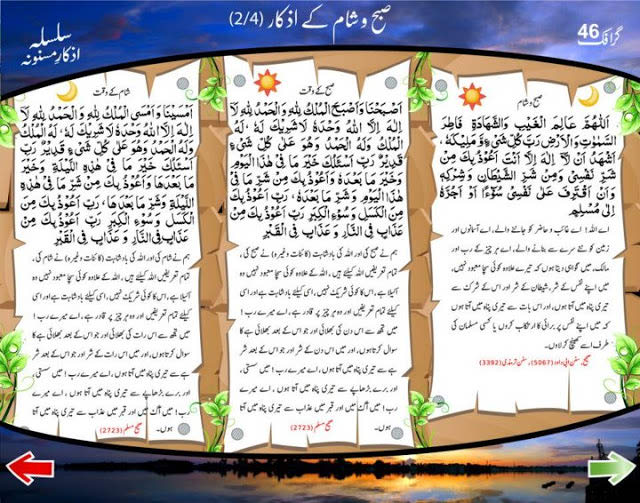 صبح و شام کے اذکار (2/4)
گرافک 46
سلسلہ
اذکارِ مسنونہ
صبح و شام
اَللّٰهُمَّ عَالِمَ الْغَيْبِ وَالشَّهَادَةِ فَاطِرَ
السَّمٰوٰتِ وَالْاَرْضِ رَبَّ كُلِّ شَیْءٍ وَّ مَلِيْكَهُ،
اَشْهَدُ اَنْ لَّا اِلٰهَ اِلَّا اَنْتَ اَعُوْذُ بِكَ مِنْ
شَرِّ نَفْسِیْ وَمِنْ شَرِّ الشَّيْطَانِ وَ شِرْكِهِ
وَاَنْ اَقْتَرِفَ عَلٰى نَفْسِیْ سُوْٓءًا اَوْ اَجُرَّهُ
اِلٰى مُسْلِمٍ
اے اللہ! اے غائب و حاضر کو جاننے والے، اے آسمانوں اور
زمین کو نئے سرے سے بنانے والے، اے ہر چیز کے رب اور
مالک، میں گواہی دیتا ہوں کہ تیرے علاوہ کوئی سچا معبود نہیں،
میں اپنے نفس کے شر، شیطان کے شر اور اس کے شرک سے
تیری پناہ میں آتا ہوں، اور اس بات سے تیری پناہ میں آتا ہوں
کہ میں اپنے نفس پر برائی کا ارتکاب کروں یا کسی مسلمان کی
طرف اسے کھینچ کر لاؤں۔
صحیح، سنن ابی داود (5067)، سنن ترمذی (3392)
صبح کے وقت
اَصْبَحْنَا وَاَصْبَحَ الْمُلْكُ لِلّٰهِ وَالْحَمْدُ لِلّٰهِ لَا
اِلٰهَ اِلَّا اللّٰهُ وَحْدَهُ لَا شَرِيْكَ لَهُ، لَهُ
الْمُلْكُ وَلَهُ الْحَمْدُ وَهُوَ عَلٰى كُلِّ شَیْءٍ
قَدِيْرٌ رَبِّ اَسْئَلُكَ خَيْرَ مَا فِیْ هٰذَا الْيَوْمِ
وَخَيْرَ مَا بَعْدَهُ وَاَعُوْذُ بِكَ مِنْ شَرِّ مَا فِیْ
هٰذَا الْيَوْمِ وَ شَرِّ مَا بَعْدَهُ، رَبِّ اَعُوْذُ بِكَ
مِنَ الْكَسَلِ وَ سُوْٓءِ الْكِبَرِ رَبِّ اَعُوْذُ بِكَ مِنْ
عَذَابٍ فِی النَّارِ وَ عَذَابٍ فِی الْقَبْرِ
ہم نے صبح کی اور اللہ کی بادشاہت (کائنات وغیرہ) نے صبح کی،
تمام تعریفیں اللہ کیلئے ہیں، اللہ کے علاوہ کوئی سچا معبود نہیں وہ
اکیلا ہے، اس کا کوئی شریک نہیں، اسی کیلئے بادشاہت ہے اور اسی
کیلئے تمام تعریفیں اور وہ ہر چیز پر قادر ہے، اے میرے رب!
میں تجھ سے اس دن کی بھلائی اور جو اس کے بعد بھلائی ہے کا
سوال کرتا ہوں، اور میں اس دن کے شر اور جو اس کے بعد شر
ہے سے تیری پناہ میں آتا ہوں، اے میرے رب! میں سستی،
اور برے بڑھاپے سے تیری پناہ میں آتا ہوں، اے میرے
رب! میں آگ میں اور قبر میں عذاب سے تیری پناہ میں آتا
ہوں۔ صحیح مسلم (2723)
شام کے وقت
اَمْسَيْنَا وَاَمْسَى الْمُلْكُ لِلّٰهِ وَالْحَمْدُ لِلّٰهِ لَا
اِلٰهَ اِلَّا اللّٰهُ وَحْدَهُ لَا شَرِيْكَ لَهُ، لَهُ الْمُلْكُ
وَلَهُ الْحَمْدُ وَهُوَ عَلٰى كُلِّ شَیْءٍ قَدِيْرٌ رَبِّ
اَسْئَلُكَ خَيْرَ مَا فِیْ هٰذِهِ اللَّيْلَةِ وَخَيْرَ
مَا بَعْدَهَا وَاَعُوْذُ بِكَ مِنْ شَرِّ مَا فِیْ هٰذِهِ
اللَّيْلَةِ وَ شَرِّ مَا بَعْدَهَا، رَبِّ اَعُوْذُ بِكَ مِنَ
الْكَسَلِ وَ سُوْٓءِ الْكِبَرِ رَبِّ اَعُوْذُ بِكَ مِنْ
عَذَابٍ فِی النَّارِ وَ عَذَابٍ فِی الْقَبْرِ
ہم نے شام کی اور اللہ کی بادشاہت (کائنات وغیرہ) نے شام کی،
تمام تعریفیں اللہ کیلئے ہیں، اللہ کے علاوہ کوئی سچا معبود نہیں وہ
اکیلا ہے، اس کا کوئی شریک نہیں، اسی کیلئے بادشاہت ہے اور اسی
کیلئے تمام تعریفیں اور وہ ہر چیز پر قادر ہے، اے میرے رب!
میں تجھ سے اس رات کی بھلائی اور جو اس کے بعد بھلائی ہے کا
سوال کرتا ہوں، اور میں اس رات کے شر اور جو اس کے بعد شر
ہے سے تیری پناہ میں آتا ہوں، اے میرے رب! میں سستی،
اور برے بڑھاپے سے تیری پناہ میں آتا ہوں، اے میرے
رب! میں آگ میں اور قبر میں عذاب سے تیری پناہ میں آتا
ہوں۔ صحیح مسلم (2723)